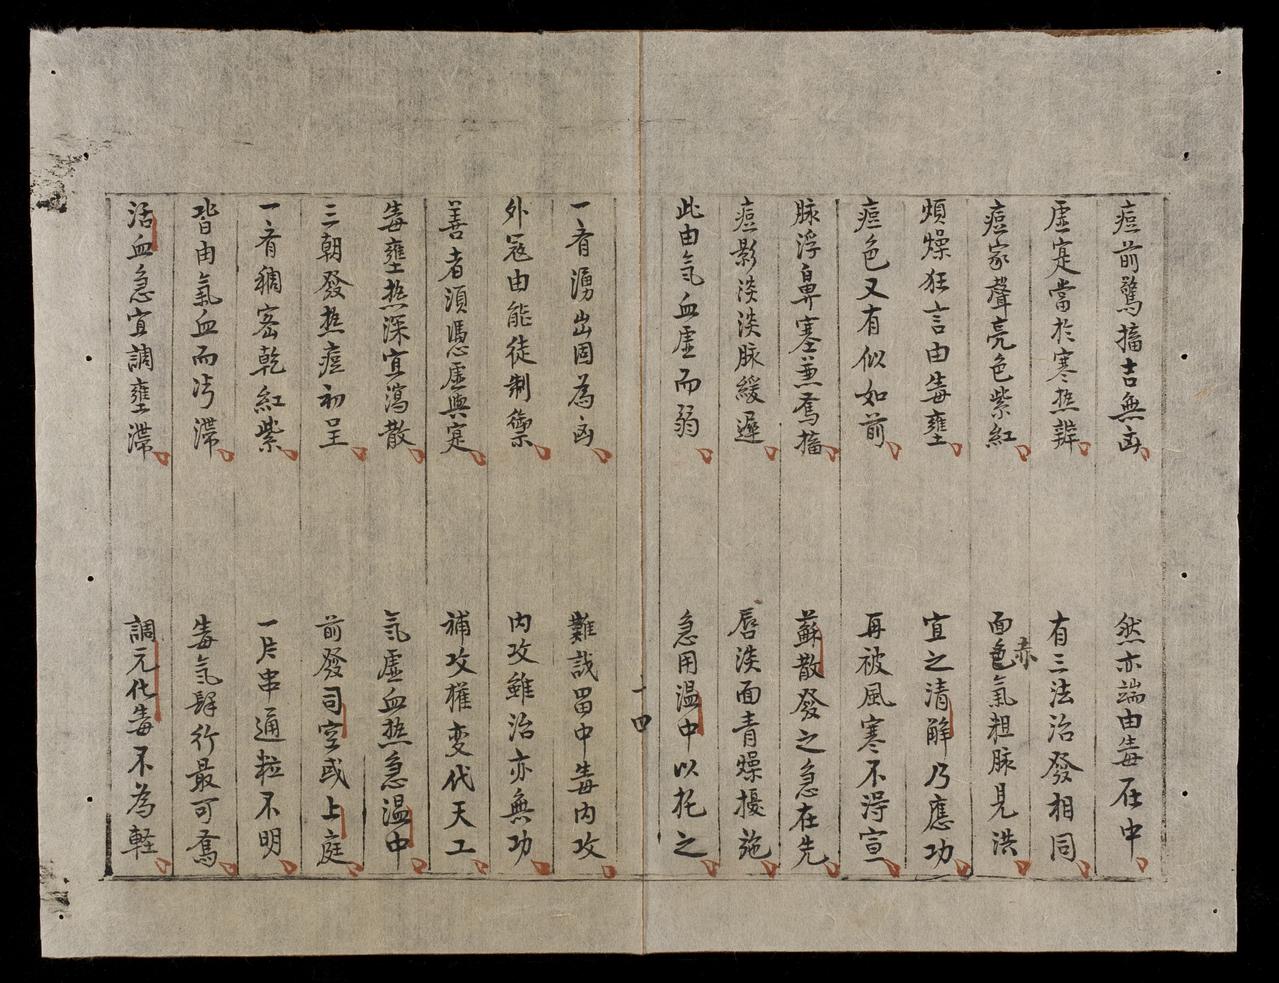 痘前驚搐吉無凶 然亦端由毒在中
虛寔當於寒热辨 有三法治發相同
痘家聲亮色紫紅 面色赤氣粗脉見洪
煩燥狂言由毒壅 宜之清解乃應功
痘色又有似如前 再被風寒不淂宣
脉浮鼻塞兼驚搐 蘇散發之急在先
痘影淡淡脉緩遲 唇淡面青燥擾施
此由氣血虛而弱 急用温中以托之
十四
一齐湧出固為凶 難哉畱中毒内攻
外寇由能徒制禦 内攻雖治亦無功
善者須憑虛與寔 補攻獲变代天工
毒壅热深宜瀉散 氣虛血热急温中
三朝發热痘初呈 前發司空或上庭
一齐稠密乾紅紫 一片串通粒不明
皆由氣血而污滯 毒气肆行最可驚
活血急宜調壅滯 調元化毒不為軽